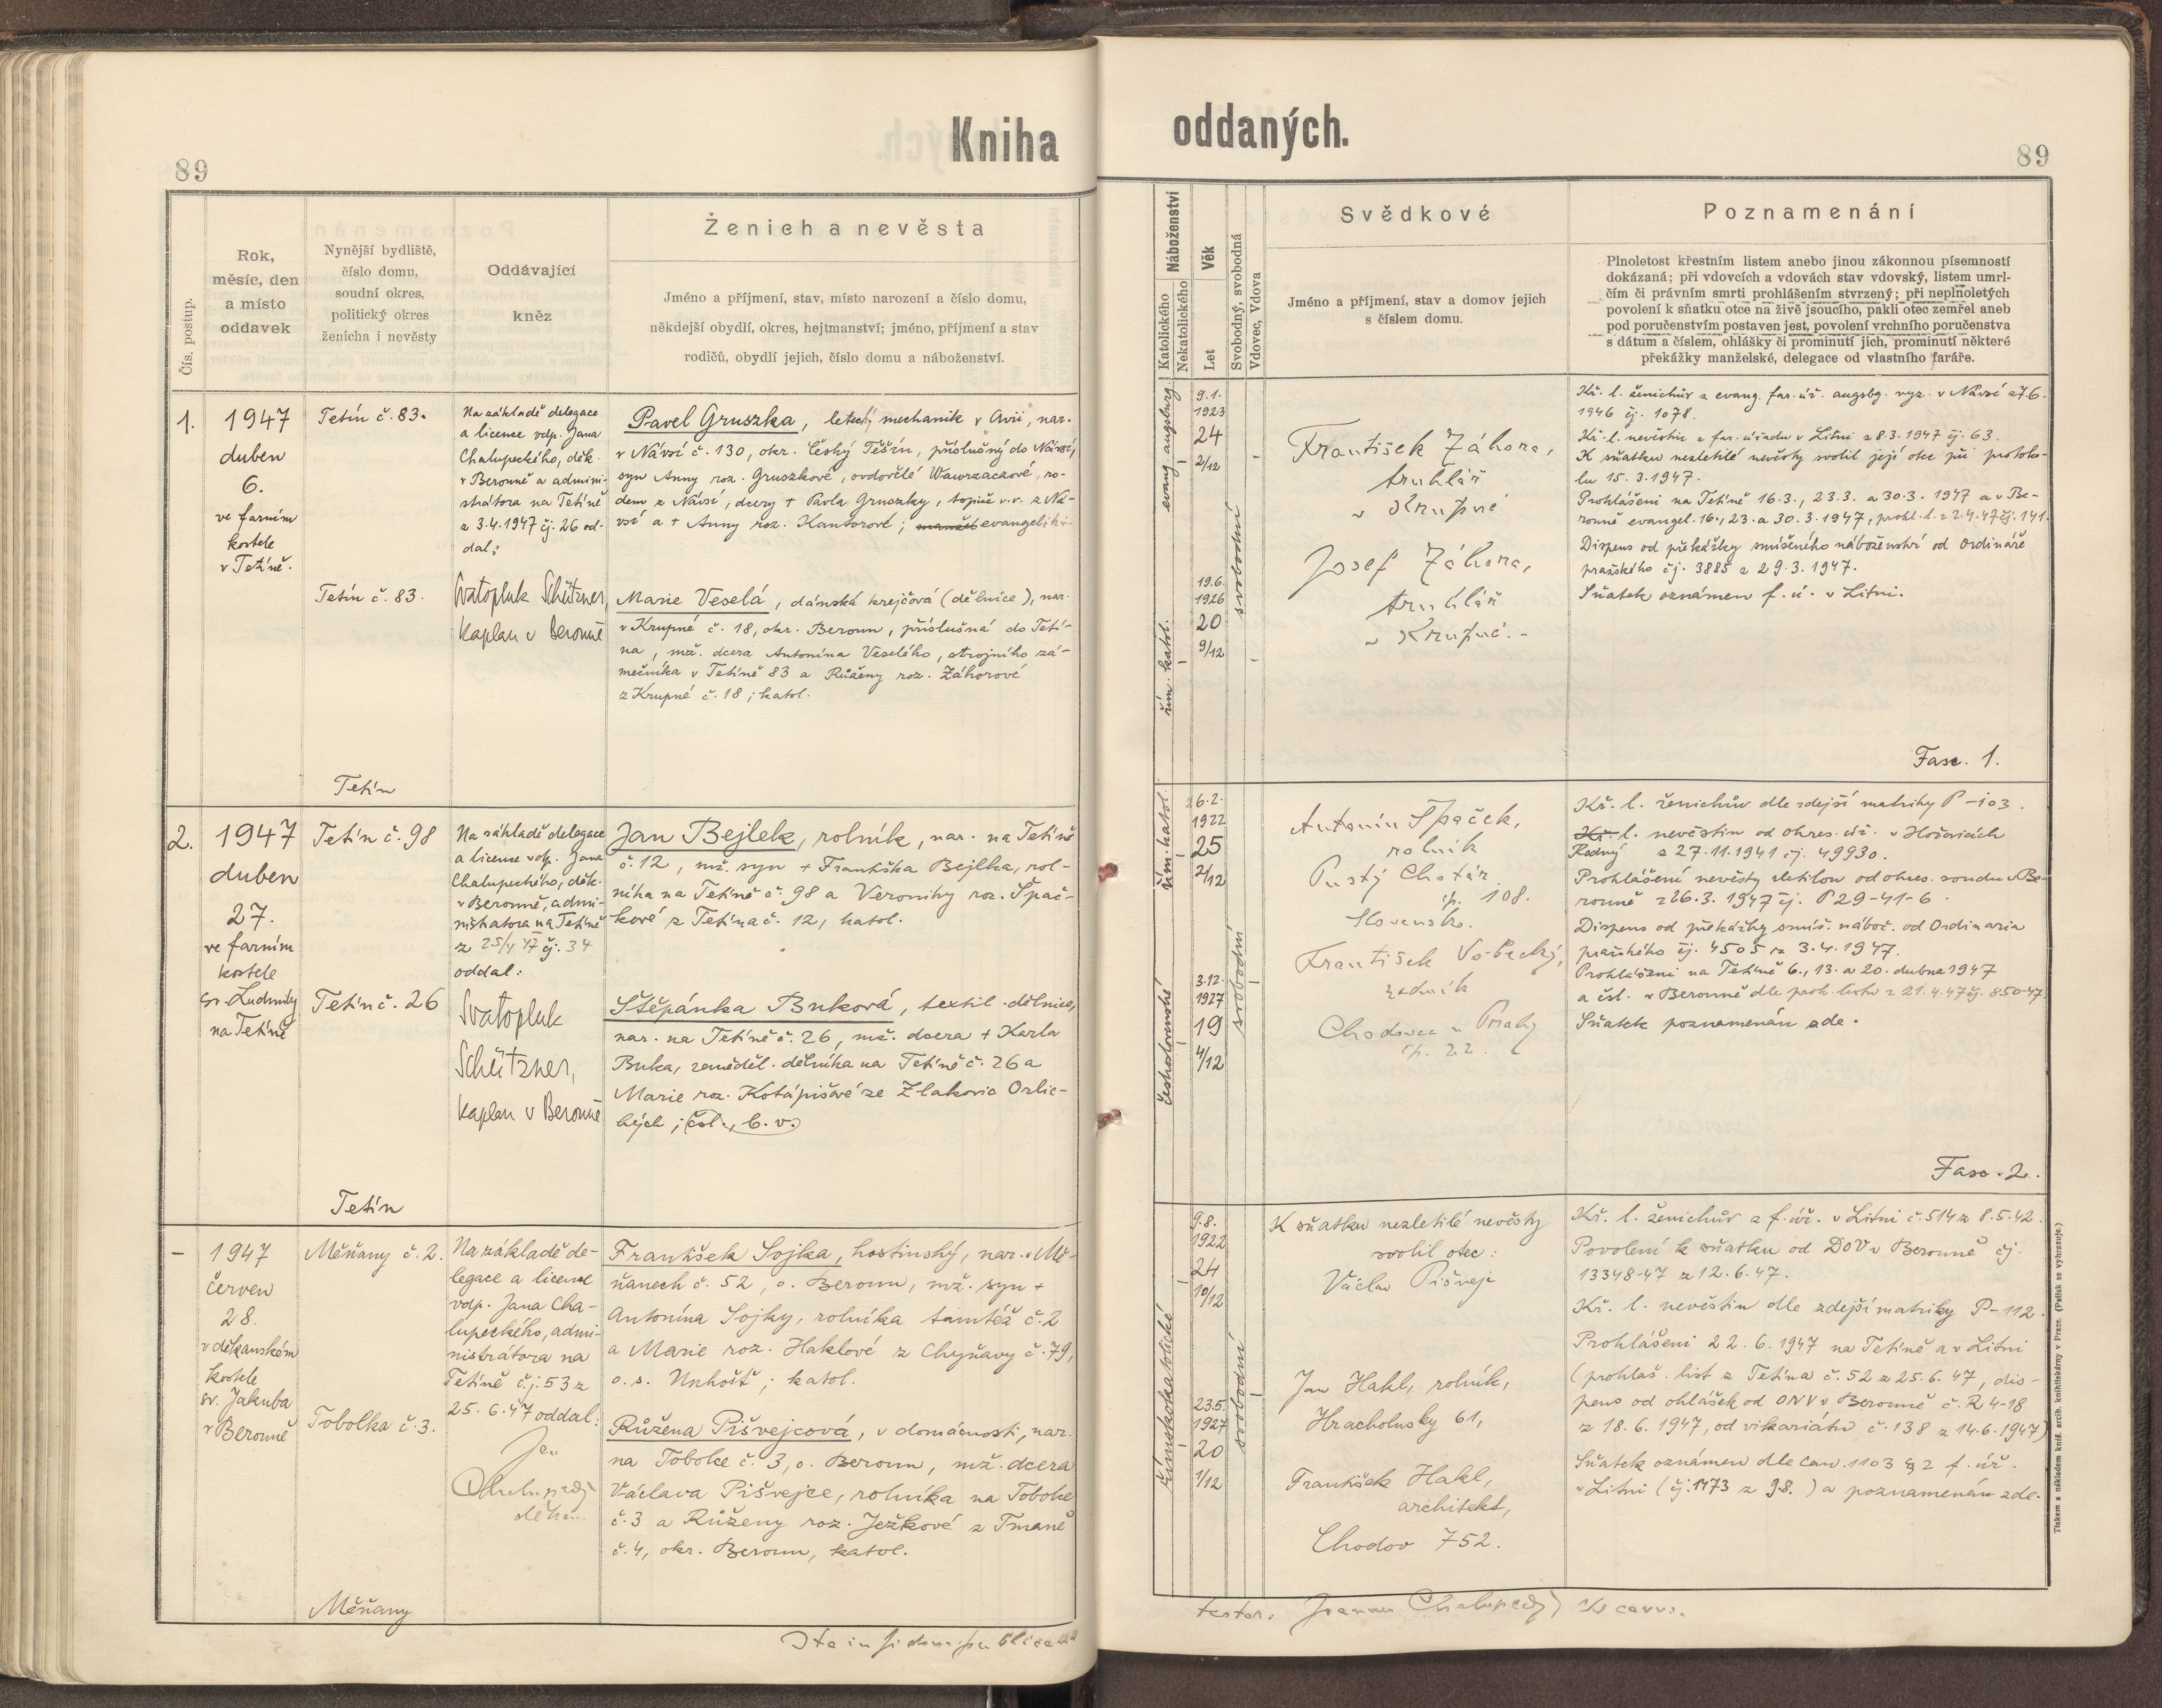 Kniha oddaných.
89
89
Čís. postup.
Rok,
měsíc, den
a místo
oddavek
Nynější bydliště,
číslo domu,
soudní okres,
politický okres
ženicha i nevěsty
Oddávající
kněz
Ženich a nevěsta
Jméno a příjmení, stav, místo narození a číslo domu,
někdejší obydlí, okres, hejtmanství; jméno, příjmení a stav
rodičů, obydlí jejich, číslo domu a náboženství.
Náboženství
Katolického
Nekatolického
Věk
Let
Svobodný, svobodná
Vdovec, Vdova
Svědkové
Jméno a příjmení, stav a domov jejich
s číslem domu.
Poznamenání
Plnoletost křestním listem anebo jinou zákonnou písemností
dokázaná; při vdovcích a vdovách stav vdovský, listem umrl-
čím či právním smrti prohlášením stvrzený; při neplnoletých
povolení k sňatku otce na živě jsoucího, pakli otec zemřel aneb
pod poručenstvím postaven jest, povolení vrchního poručenstva
s dátum a číslem, ohlášky či prominutí jich, prominutí některé
překážky manželské, delegace od vlastního faráře.
1.
1947
duben
6.
ve farním
kostele
v Tetíně.
Tetín č. 83.
Tetín č. 83.
Tetín
Na základě delegace
a licence vdp. Jana
Chalupeckého, děk.
v Berouně a admini-
strátora na Tetíně
z 3.4.1947 čj. 26 od-
dal:
Svatopluk Schützner,
kaplan v Berouně
Pavel Gruszka, letecký mechanik v Avii, nar.
v Návsí č. 130, okr. Český Těšín, příslušný do Návsí,
syn Anny roz. Gruszkové, ovdovělé Wawrzaczové, ro-
dem z Návsí, dcery + Pavla Gruszky, topiče v.v. z Ná-
vsí a + Anny roz. Kantorové; evangelík.
Marie Veselá, dámská krejčová (dělnice), nar.
v Krupné č. 18, okr. Beroun, příslušná do Tetí-
na, mž. dcera Antonína Veselého, strojního zá-
mečníka v Tetíně 83 a Růženy roz. Záhorové
z Krupné č. 18; katol.
evang. augsburg.
řím. katol.
9.1.
1923
24
2/12
19.6.
1926
20
9/12
svobodní
František Záhora,
truhlář
v Krupné
Josef Záhora,
truhlář
v Krupné.-
Kř. l. ženichův z evang. far. úř. augsbg. vyz. v Návsí z 7.6.
1946 čj. 1078.
Kř. l. nevěstin z far. úřadu v Litni z 8.3.1947 čj. 63.
K sňatku nezletilé nevěsty svolil její otec při protoko-
lu 15.3.1947.
Prohlášeni na Tetíně 16.3., 23.3. a 30.3. 1947 a v Be-
rouně evangel. 16., 23. a 30.3.1947, prohl. l. z 2.4.47 čj. 141.
Dispens od překážky smíšeného náboženství od Ordináře
pražského čj. 3885 z 29.3.1947.
Sňatek oznámen f. ú. v Litni.
Fasc. 1.
2.
1947
duben
27.
ve farním
kostele
sv. Ludmily
na Tetíně
Tetín č. 98
Tetín č. 26
Tetín
Na základě delegace
a licence vdp. Jana
Chalupeckého, děk.
v Berouně, admi-
nistrátora na Tetíně
z 25/4 47 čj. 34
oddal:
Svatopluk
Schützner,
kaplan v Berouně
Jan Bejlek, rolník, nar. na Tetíně
č. 12, mž. syn + Františka Bejlka, rol-
níka na Tetíně č. 98 a Veroniky roz. Špač-
kové z Tetína č. 12, katol.
Štěpánka Buková, textil. dělnice,
nar. na Tetíně č. 26, mž. dcera + Karla
Buka, zeměděl. dělníka na Tetíně č. 26 a
Marie roz. Kotápišové ze Zlakovic Orlic-
kých; čsl., b. v.
řím. katol.
československé
26.2.
1922
25
2/12
3.12.
1927
19
4/12
svobodní
Antonín Špaček,
rolník
Pustý Chotár
čp. 108.
Slovensko.
František
zedník
Chodouň u Prahy
čp. 22.
Kř. l. ženichův dle zdejší matriky P-103.
Kř. l. nevěstin od okres. úř. v Hořovicích
Rodný z 27.11.1941 čj. 49930.
Prohlášení nevěsty zletilou od okres. soudu v Be-
rouně z 26.3.1947 čj. P 29-41-6.
Dispens od překážky smíš. nábož. od Ordinaria
pražského čj. 4505 z 3.4.1947.
Prohlášeni na Tetíně 6., 13. a 20. dubna 1947
a čsl. v Berouně dle proh. listu z 21.4.47 čj. 850-47.
Sňatek poznamenán zde.
Fasc. 2.
-
1947
červen
28.
v děkanském
kostele
sv. Jakuba
v Berouně
Měňany č. 2.
Tobolka č. 3.
Měňany
Na základě de-
legace a licence
vdp. Jana Cha-
lupeckého, admi-
nistrátora na
Tetíně č.j. 53 z
25.6.47 oddal:
Jan
Chalupecký
děkan
František Sojka, hostinský, nar. v Mě-
ňanech č. 52, o. Beroun, mž. syn +
Antonína Sojky, rolníka tamtéž č. 2
a Marie roz. Haklové z Chyňavy č. 79,
o. s. Unhošť; katol.
Růžena Pišvejcová, v domácnosti, nar.
na Tobolce č. 3, o. Beroun, mž. dcera
Václava Pišvejce, rolníka na Tobolce
č. 3 a Růženy roz. Ježkové z Tmaně
č. 4, okr. Beroun, katol.
římskokatolické
9.8.
1922
24
10/12
23.5.
1927
20
1/12
svobodní
K sňatku nezletilé nevěsty
svolil otec:
Václav Pišvejc
Jan Hakl, rolník,
Hracholusky 61,
František Hakl,
architekt,
Chodov 752.
Kř. l. ženichův z f. úř. v Litni č. 514 z 8.5.42.
Povolení k sňatku od DOV v Berouně čj.
13348-47 z 12.6.47.
Kř. l. nevěstin dle zdejší matriky P-112.
Prohlášeni 22.6.1947 na Tetíně a v Litni
(prohláš. list z Tetína č. 52 z 25.6.47, dis-
pens od ohlášek od ONV v Berouně č. R 4-18
z 18.6.1947, od vikariátu č. 138 z 14.6.1947)
Sňatek oznámen dle can. 1103 § 2 f. úř.
v Litni (čj. 1173 z 9.8.) a poznamenán zde.
Tiskem a nákladem kníž. arcib. knihtiskárny v Praze. (Patisk se vyhrazuje.)
Ita in fidem publicam
testor: Joannes Chalupecký